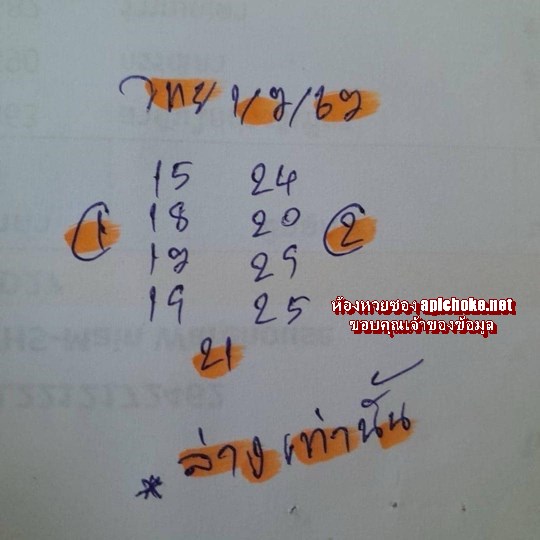 ไทย 1/7/67
15 24
1 18 20 2
17 29
19 25
ห้องหวยซอง apichoke.net
ขอบคุณเจ้าของข้อมูล
21
* ล่างเท่านั้น